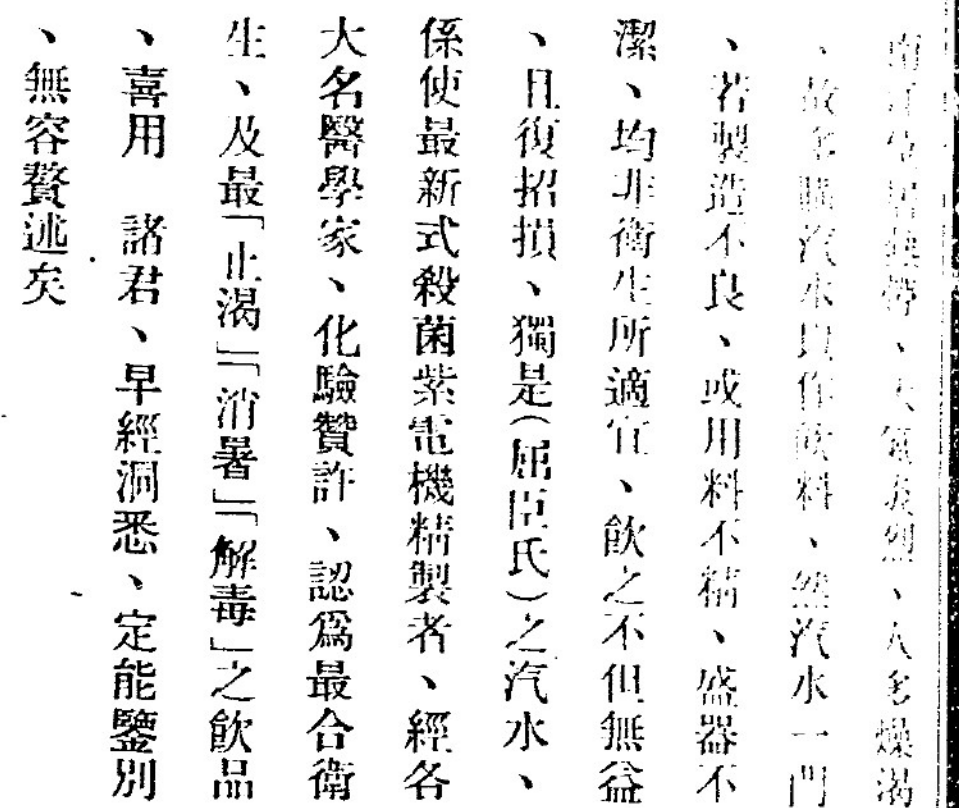 南洋地居熱帶、天氣炎烈、人多燥渴
、故多購汽水以作飲料、然汽水一門
、若製造不良、或用料不精、盛器不
潔、均非衛生所適宜、飲之不但無益
、且復招損、獨是(屈臣氏)之汽水、
係使最新式殺菌紫電機精製者、經各
大名醫學家、化驗贊許、認爲最合衛
生、及最「止渴」「消暑」「解毒」之飲品
、喜用　諸君、早經洞悉、定能鑒別
、無容贅述矣